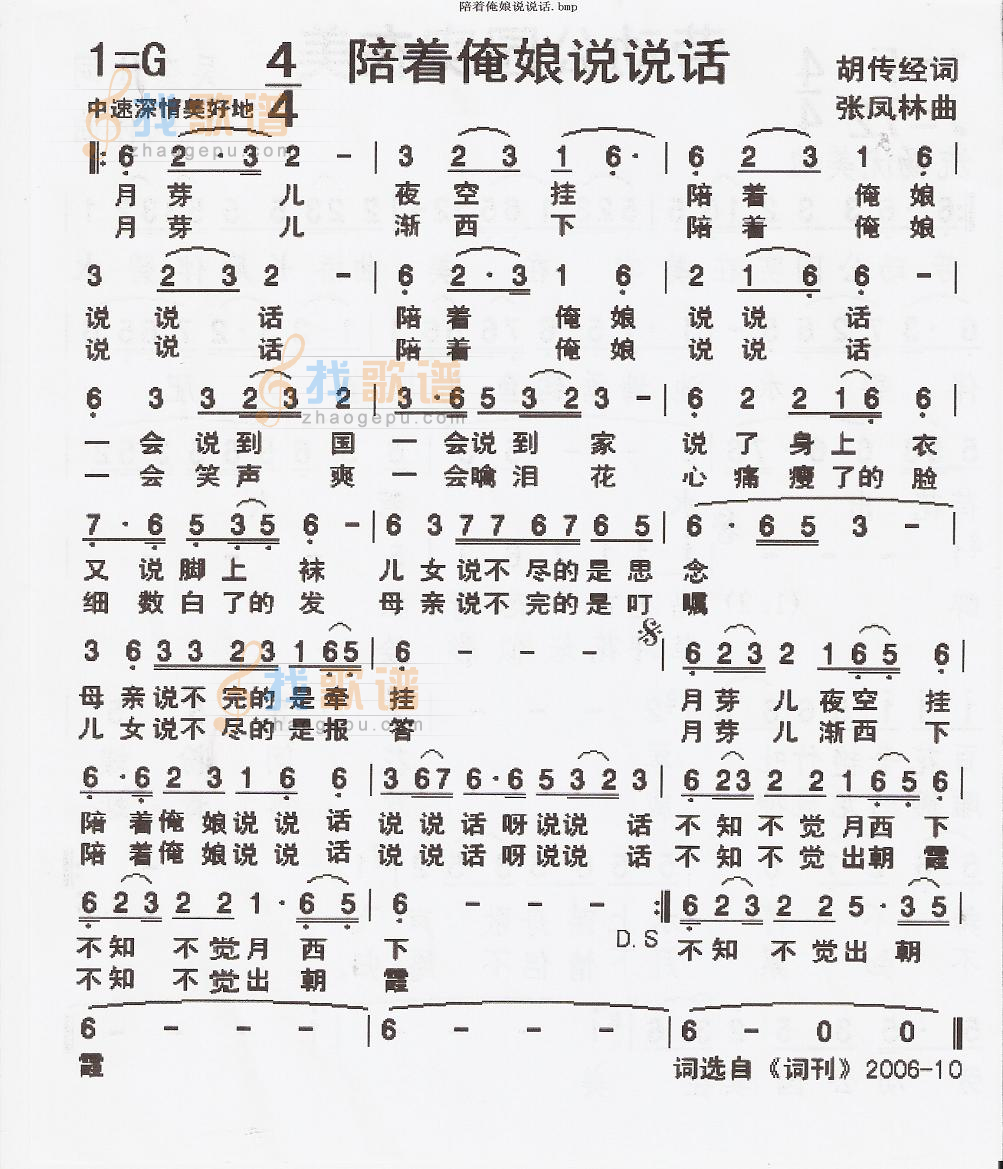 陪着俺娘说说话.bmp
1=G 4/4 陪着俺娘说说话 胡传经词
中速深情美好地 张凤林曲
找歌谱
zhaogepu.com
‖: 6 2 · 3 2 - | 3 2 3 1 6 · | 6 2 3 1 6 |
月芽儿 夜空挂 陪着俺娘
月芽儿 渐西下 陪着俺娘
3 2 3 2 - | 6 2 · 3 1 6 | 2 1 6 6 - |
说说话 陪着俺娘 说说话
说说话 陪着俺娘 说说话
找歌谱
zhaogepu.com
6 3 3 3 2 3 2 | 3 · 6 5 3 2 3 - | 6 2 2 1 6 6 |
一会说到国 一会说到家 说了身上衣
一会笑声爽 一会噙泪花 心痛瘦了的脸
7 · 6 5 3 5 6 - | 6 3 7 7 6 7 6 5 | 6 · 6 5 3 - |
又说脚上袜 儿女说不尽的是思念
细数白了的发 母亲说不完的是叮嘱
3 6 3 3 2 3 1 6 5 | 6 - - - | 6 2 3 2 1 6 5 6 |
母亲说不完的是牵挂 月芽儿夜空挂
儿女说不尽的是报答 月芽儿渐西下
找歌谱
zhaogepu.com
6 · 6 2 3 1 6 6 | 3 6 7 6 · 6 5 3 2 3 | 6 2 3 2 2 1 6 5 6 |
陪着俺娘说说话 说说话呀说说话 不知不觉月西下
陪着俺娘说说话 说说话呀说说话 不知不觉出朝霞
6 2 3 2 2 1 · 6 5 | 6 - - - :‖ 6 2 3 2 2 5 · 3 5 |
D.S
不知不觉月西下 不知不觉出朝
不知不觉出朝霞
6 - - - | 6 - - - | 6 - 0 0 ‖
霞 词选自《词刊》2006-10